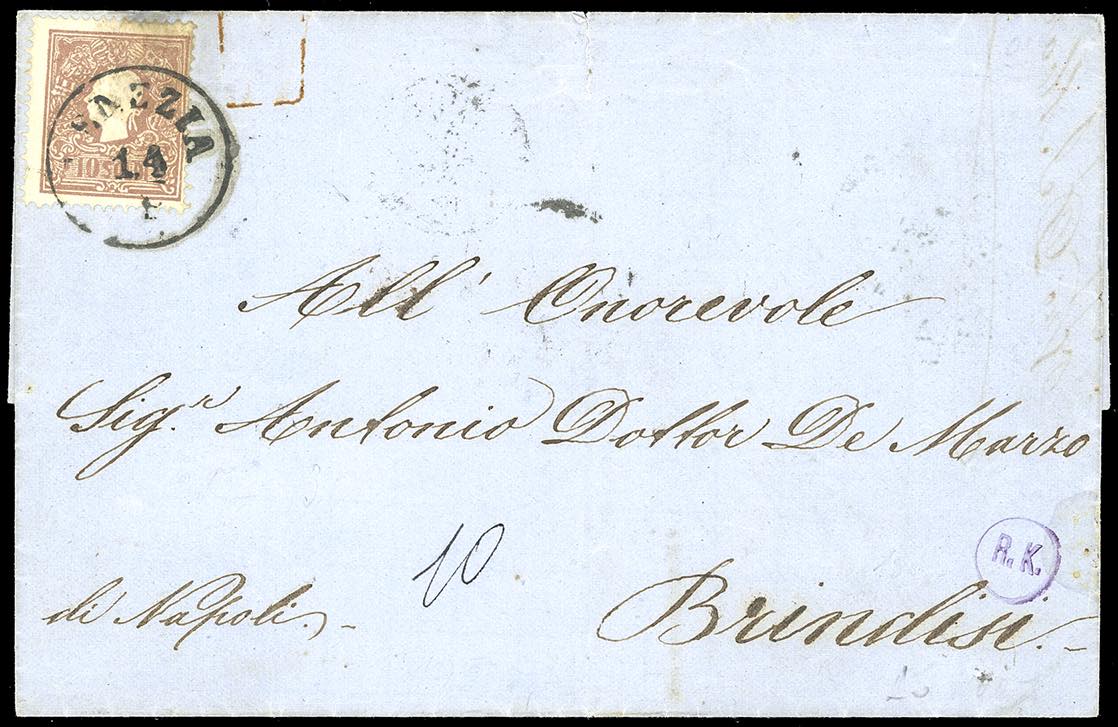 VENEZIA
14
10 SOLDI
All' Onorevole
Sig.r Antonio Dottor De Marzo
10
R. K.
di Napoli.
Brindisi.